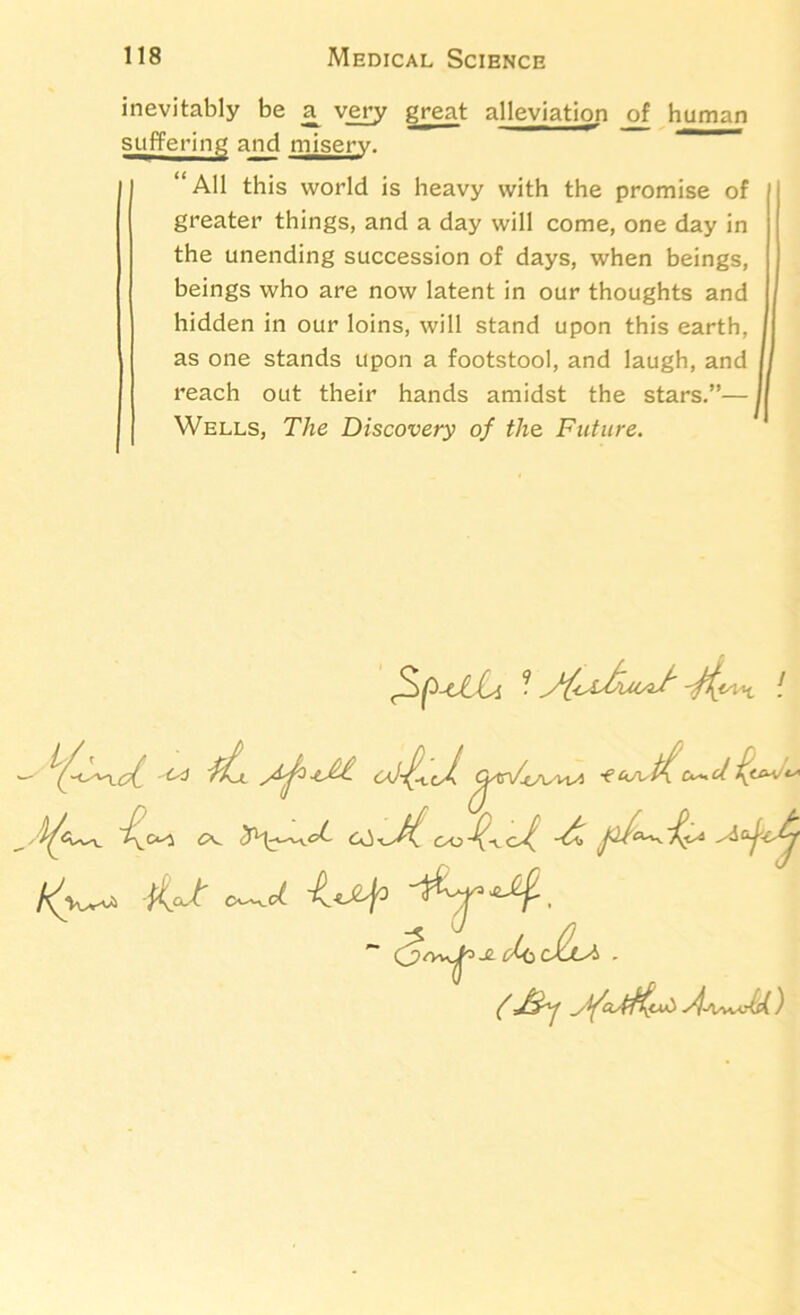 118 MEDICAL SCIENCE
inevitably be a very great alleviation of human
suffering and misery.
“All this world is heavy with the promise of
greater things, and a day will come, one day in
the unending succession of days, when beings,
beings who are now latent in our thoughts and
hidden in our loins, will stand upon this earth,
as one stands upon a footstool, and laugh, and
reach out their hands amidst the stars.”—
WELLS, The Discovery of the Future.
Spells? Mistrust them!
— Mind is the spell which governs earth and heaven
Man has a mind with which to plan his safety
Know that and help thyself.
~ Empedocles.
(By Matthew Arnold)